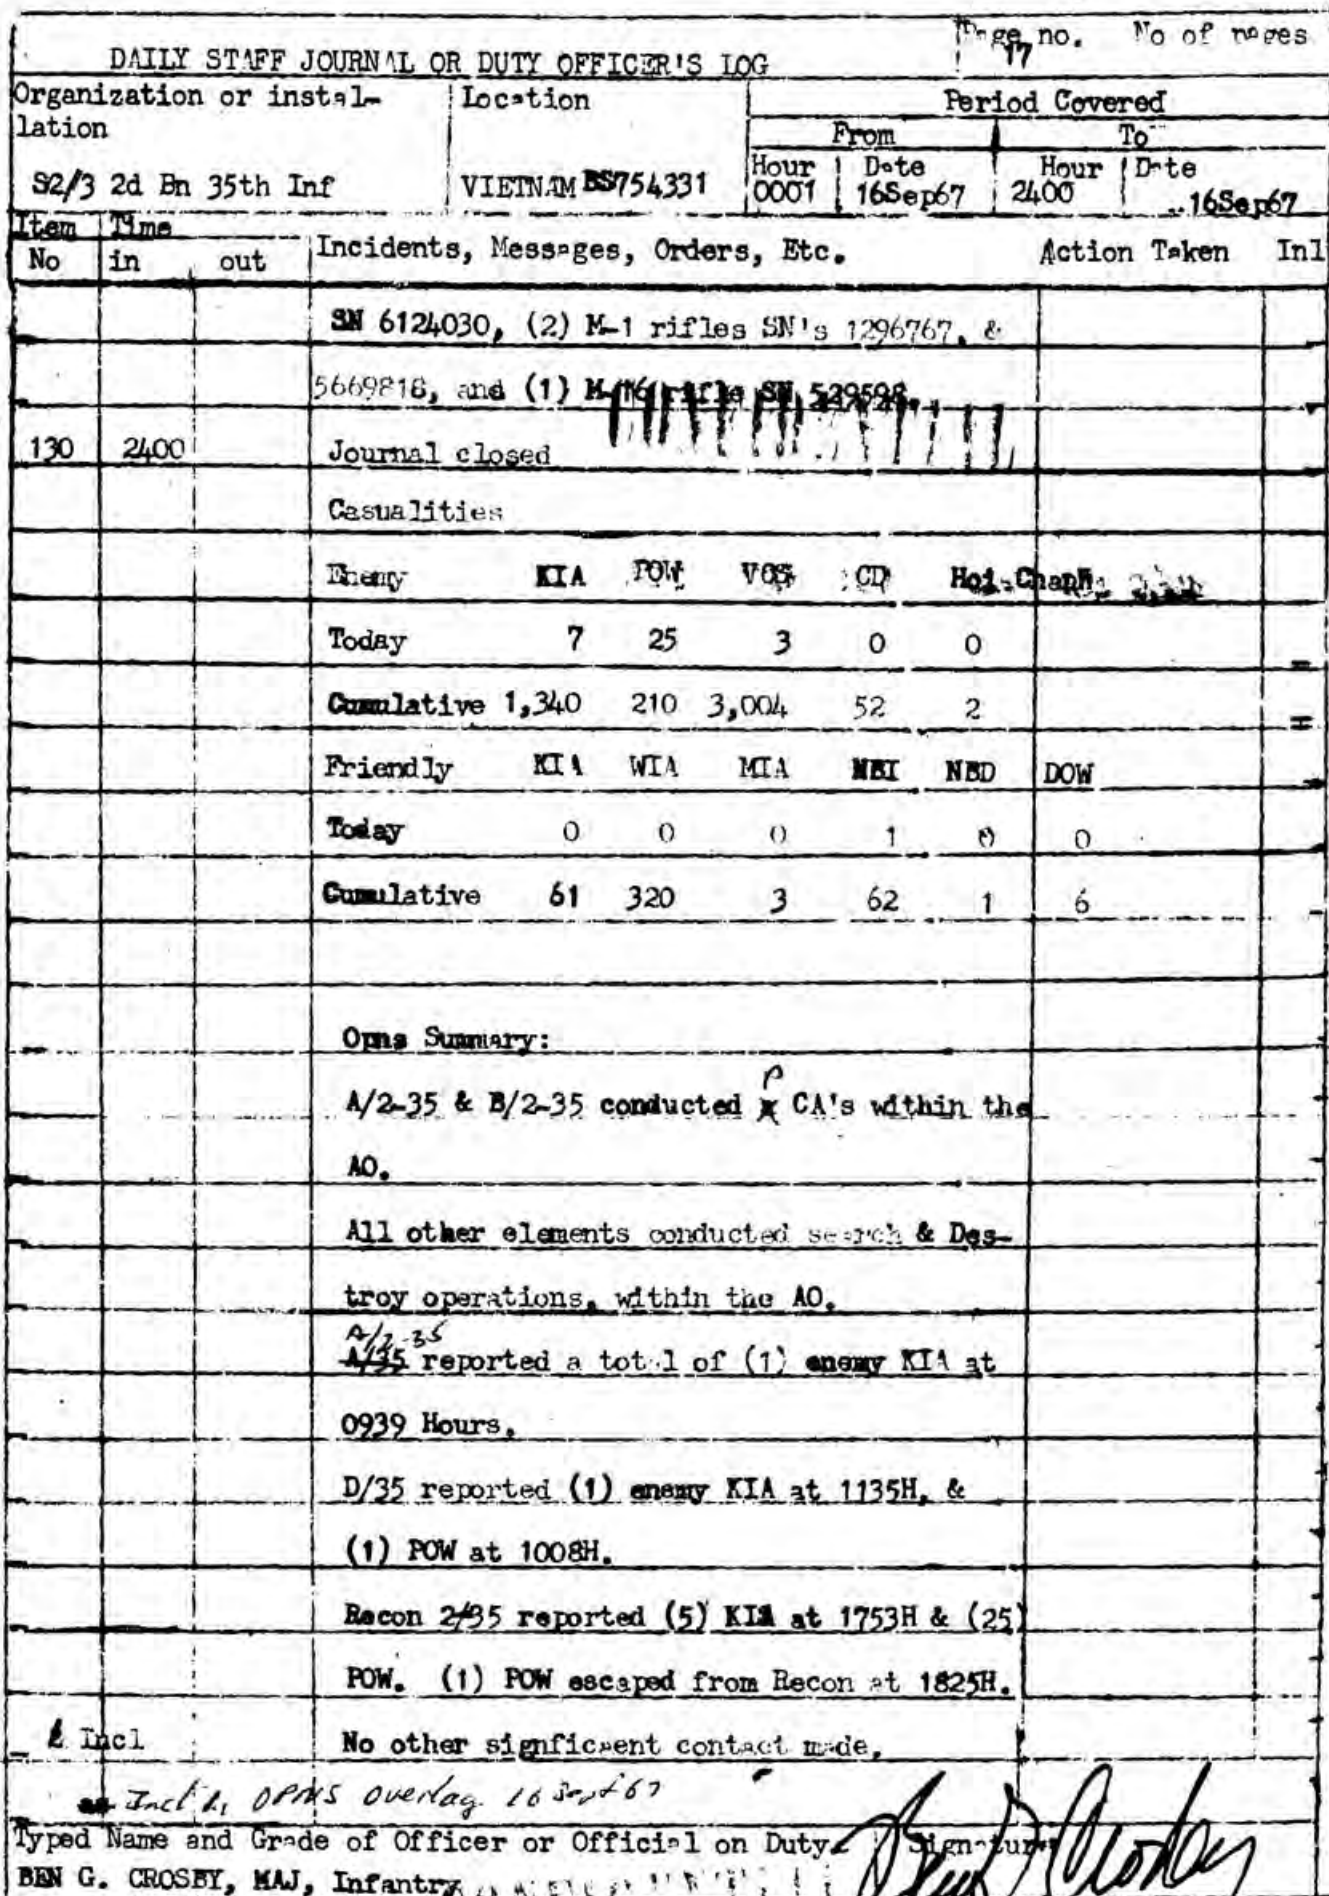 Page no. No of pages
17
DAILY STAFF JOURNAL OR DUTY OFFICER'S LOG
Organization or instal-
lation
Location
Period Covered
From To
Hour Date Hour Date
S2/3 2d Bn 35th Inf VIETNAM BS754331 0001 16Sep67 2400 16Sep67
Item Time
No in out Incidents, Messages, Orders, Etc. Action Taken Inl
SN 6124030, (2) M-1 rifles SN's 1296767, &
5669818, and (1) M-16 rifle SN 529598.
130 2400 Journal closed
Casualities
Enemy KIA POW VCS CD Hoi-Chanh
Today 7 25 3 0 0
Cumulative 1,340 210 3,004 52 2
Friendly KIA WIA MIA NBI NBD DOW
Today 0 0 0 1 0 0
Cumulative 61 320 3 62 1 6
Opns Summary:
A/2-35 & B/2-35 conducted CA's within the
AO.
All other elements conducted search & Des-
troy operations, within the AO.
A/2-35
A/35 reported a total of (1) enemy KIA at
0939 Hours.
D/35 reported (1) enemy KIA at 1135H, &
(1) POW at 1008H.
Recon 2/35 reported (5) KIA at 1753H & (25)
POW. (1) POW escaped from Recon at 1825H.
Incl No other signficent contact made.
Incl 1, OPNS Overlay 16 Sept 67
Typed Name and Grade of Officer or Official on Duty Signature
BEN G. CROSBY, MAJ, Infantry Ben G Crosby